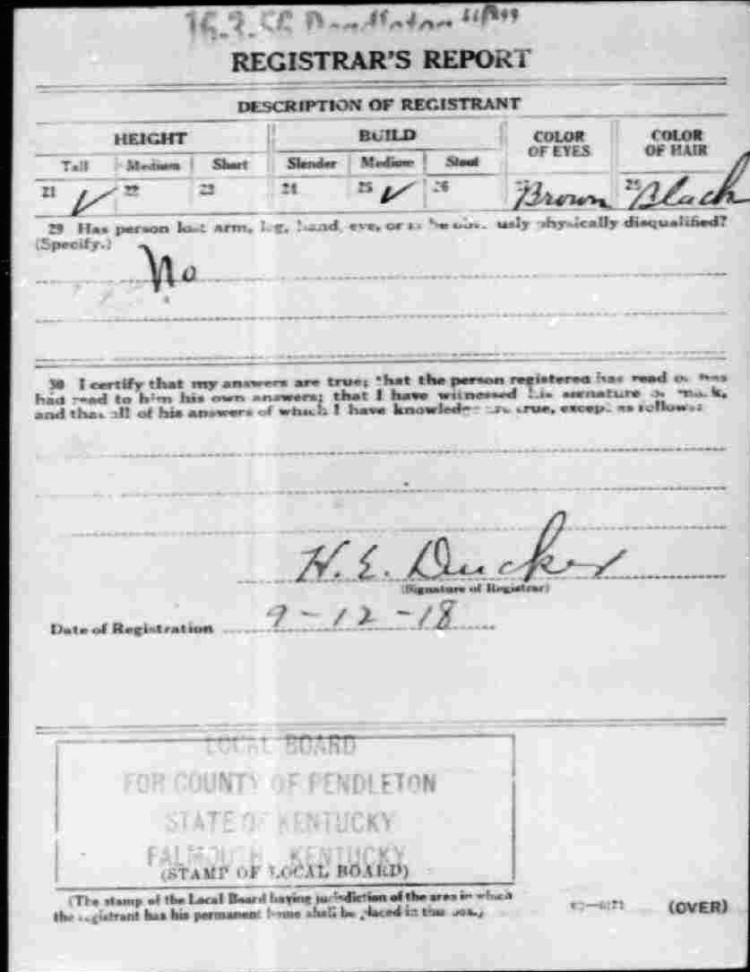 16-3-56 Pendleton
REGISTRAR'S REPORT
DESCRIPTION OF REGISTRANT
HEIGHT BUILD COLOR OF EYES COLOR OF HAIR
Tall Medium Short Slender Medium Stout
21 ✓ 22 23 24 25 ✓ 26 27 Brown 28 Black
29 Has person lost arm, leg, hand, eye, or is he obviously physically disqualified?
(Specify.)
No
30 I certify that my answers are true; that the person registered has read or has
had read to him his own answers; that I have witnessed his signature or mark,
and that all of his answers of which I have knowledge are true, except as follows:
H. E. Ducker
(Signature of Registrar)
Date of Registration 9-12-18
LOCAL BOARD
FOR COUNTY OF PENDLETON
STATE OF KENTUCKY
FALMOUTH, KENTUCKY
(STAMP OF LOCAL BOARD)
(The stamp of the Local Board having jurisdiction of the area in which
the registrant has his permanent home shall be placed in this box.)
(OVER)